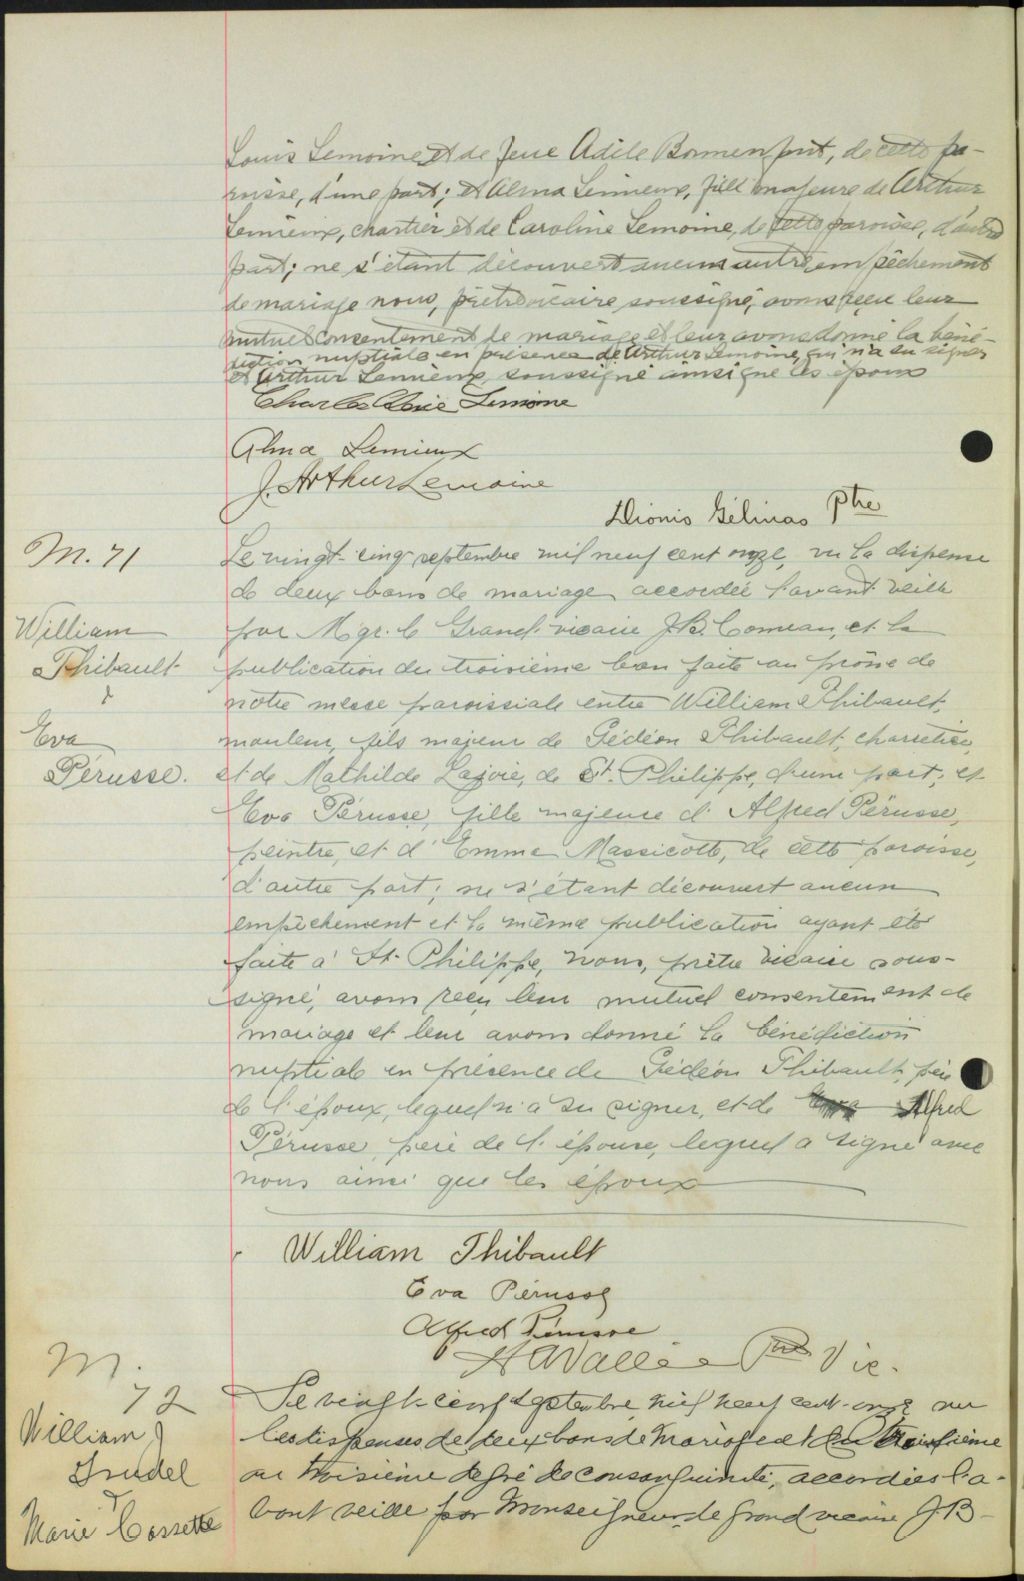 Louis Lemoine et de feue Adile Bonnenfant, de cette pa-
roisse, d'une part; et Alma Lemieux, fille majeure de Arthur
Lemieux, chartier et de Caroline Lemoine, de cette paroisse, d'autre
part; ne s'étant découvert aucun autre empêchement
de mariage nous, prêtre vicaire soussigné, avons reçu leur
mutuel consentement de mariage et leur avons donné la béné-
diction nuptiale en présence de Arthur Lemoine, qui n'a su signer
et Arthur Lemieux soussigné ainsi que les époux
Lemoine
Alma Lemieux
J. Arthur Lemoine
Dionis Gélinas Ptre
M. 71
William
Thibault
&
Eva
Pérusse.
Le vingt-cinq septembre mil neuf cent onze, vu la dispense
de deux bans de mariage accordée l'avant veille
par Mgr. le Grand-vicaire J.B. Comeau, et la
publication du troisième ban faite au prône de
notre messe paroissiale entre William Thibault,
mouleur, fils majeur de Gédéon Thibault, charretier,
et de Mathilde Lajoie, de St. Philippe, d'une part; et
Eva Pérusse, fille majeure d'Alfred Pérusse,
peintre, et d'Emma Massicotte, de cette paroisse,
d'autre part; ne s'étant découvert aucun
empêchement et la même publication ayant été
faite à St. Philippe, nous, prêtre vicaire sous-
signé, avons reçu leur mutuel consentement de
mariage et leur avons donné la bénédiction
nuptiale en présence de Gédéon Thibault, père
de l'époux, lequel n'a su signer, et de Alfred
Pérusse, père de l'épouse, lequel a signé avec
nous ainsi que les époux
William Thibault
Eva Pérusse
Alfred Pérusse
H A Vallée Ptre Vic.
M.
72
William J
Trudel
&
Marie Cossette
Le vingt-cinq septembre mil neuf cent-onze vu
les dispenses de deux bans de mariage et du troisième
au troisième degré de consanguinité, accordées l'a-
vant veille par Monseigneur le grand vicaire J.B-